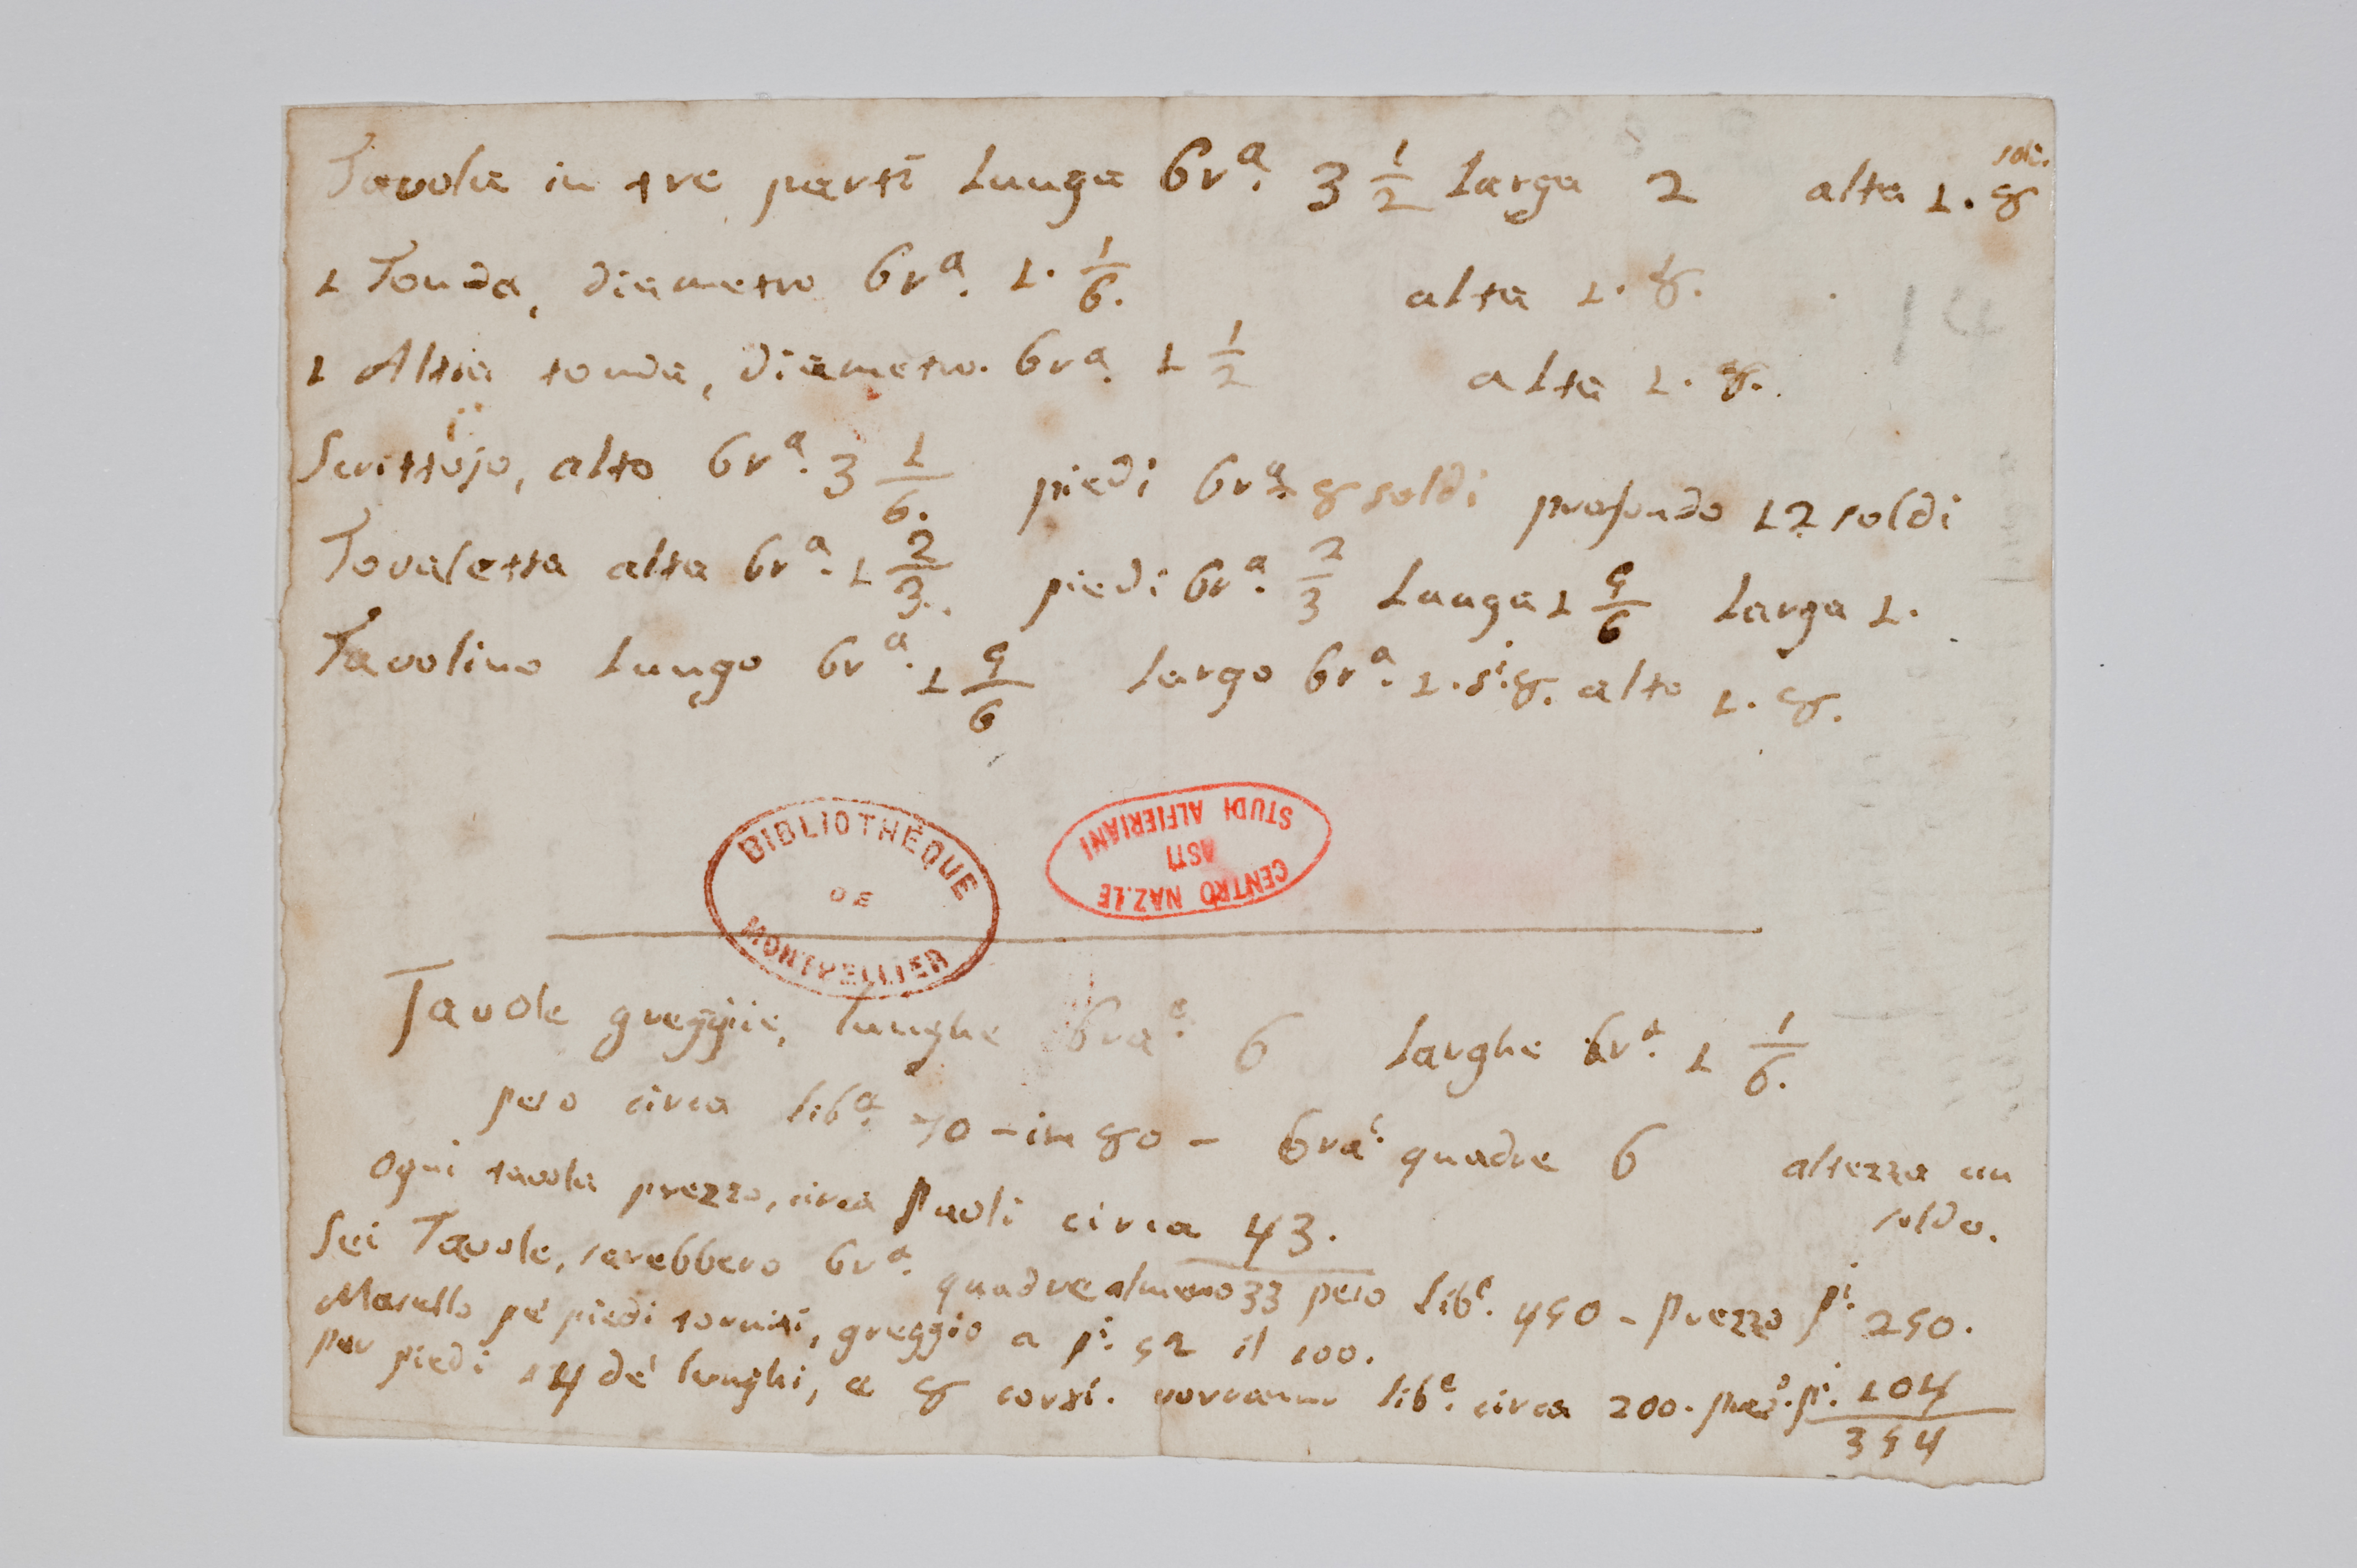 Tavola in tre parti Lunga brª. 3 1/2 Larga 2 alta 1. 8 soli.
1 Tonda, diametro brª. 1. 1/6. alta 1. 8.
1 Altra tonda, diametro. brª. 1 1/2 alta 1. 8.
Scrittojo, alto brª. 3 1/6. piedi brª. 8 soldi profondo 12 soldi
Tovaletta alta brª. 1 2/3. piedi brª. 2/3 Lunga 1 5/6 Larga 1.
Tavolino Lungo brª. 1 5/6 Largo brª. 1. si. 8. alto 1. 8.
BIBLIOTHÈQUE DE MONTPELLIER
CENTRO NAZ.LE STUDI ALFIERIANI ASTI
Tavole greggie, lunghe braᵉ. 6 Larghe brª. 1 1/6.
peso circa libª. 70 - in 80 - braᵉ. quadre 6 altezza un soldo.
Ogni tavola prezzo, circa Paoli circa 43.
Sei Tavole, sarebbero brª. quadre almeno 33 peso Libᵉ. 450 - Prezzo pⁱ. 250.
Masello pe' piedi torniti, greggio a pⁱ. 52 il 100.
per piedi 14 de' lunghi, e 8 corti. vorranno libᵉ. circa 200. prezº. pⁱ. 104
354
14